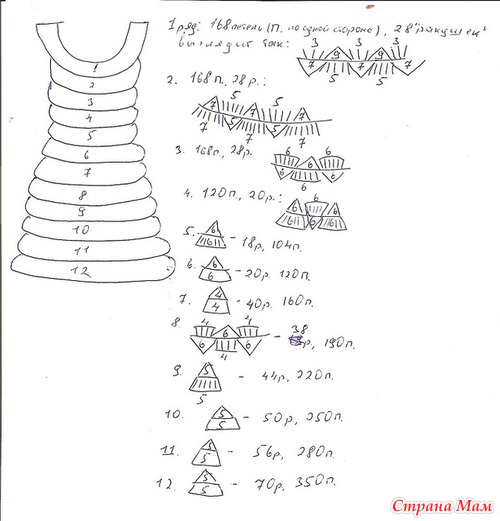 1 ряд: 168 петель (п. по одной стороне), 28 "ракушек"
выглядит так:
3 3
9 9
7 7 7
5
2. 168 п, 28 р.:
5 5
7 7 7
5 5
7 7 7
3. 168 п, 28 р.
6 6
6
6 6
6
4. 120 п, 20 р.:
6
6 6
6 6
5. 6 - 18 р, 104 п.
6
6. 6 - 20 р. 120 п.
6
7. 4 - 40 р. 160 п.
4
8 4 4
6 6 6 - 38 р, 190 п.
4
9. 5 - 44 р, 220 п.
5
10. 5 - 50 р, 250 п.
5
11. 5 - 56 р, 280 п.
5
12. 5 - 70 р, 350 п.
5
1
2
3
4
5
6
7
8
9
10
11
12
Страна Мам